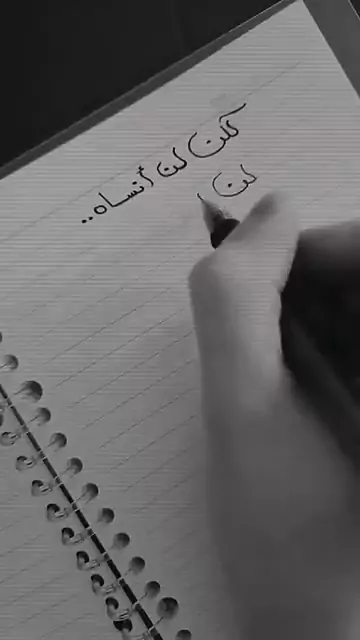 لكن لن أنساه..
لن